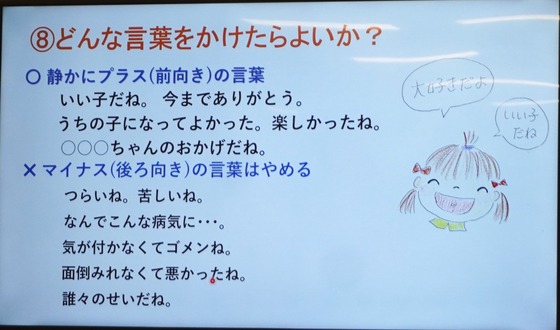 ⑧どんな言葉をかけたらよいか？
○ 静かにプラス(前向き)の言葉
いい子だね。 今までありがとう。
うちの子になってよかった。楽しかったね。
○○○ちゃんのおかげだね。
× マイナス(後ろ向き)の言葉はやめる
つらいね。苦しいね。
なんでこんな病気に・・・。
気が付かなくてゴメンね。
面倒みれなくて悪かったね。
誰々のせいだね。
大好きだよ
いい子
だね